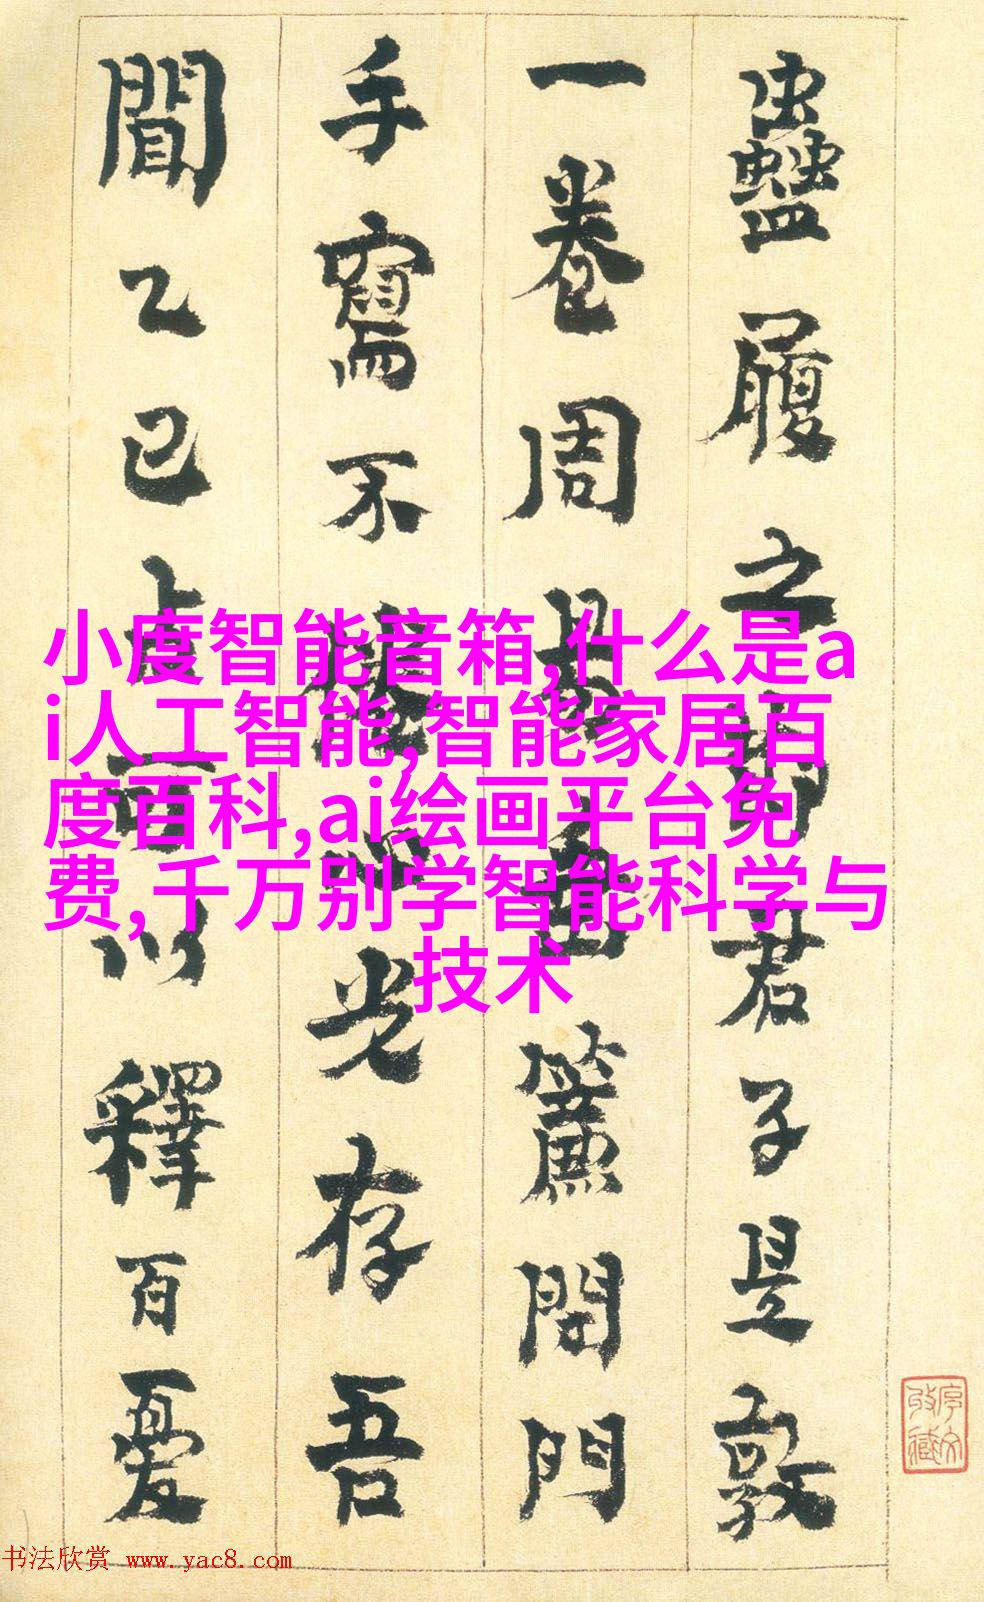 蠱履之節君子是敦
一卷周易垂簾閉門
手寫不光存吾
聞乙已占可以釋百憂
小度智能音箱,什么是a
i人工智能,智能家居百
度百科,ai绘画平台免
费,千万别学智能科学与
技术
书法欣赏 www.yac8.com